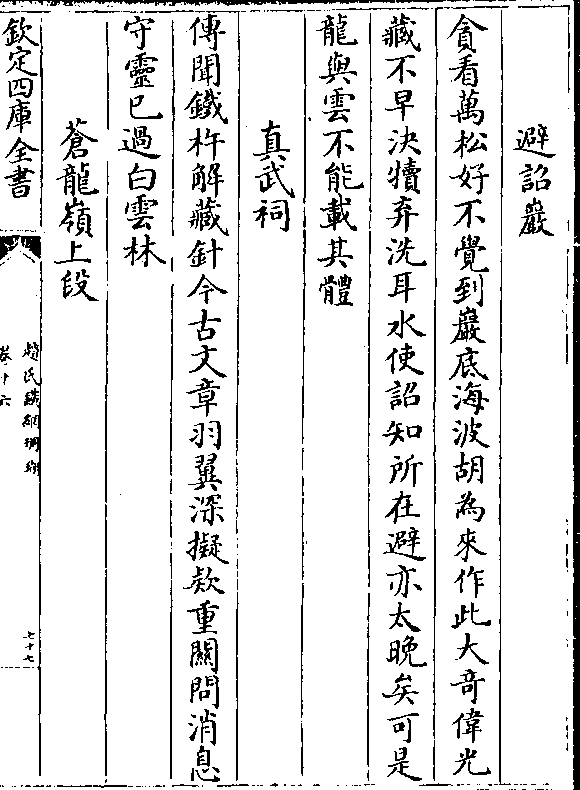 避詔巖
貪看萬松好不覺到巖底海波胡為來作此大竒偉光
藏不早決犢弃洗耳水使詔知所在避亦太晚矣可是
龍與雲不能載其體
真武祠
傳聞鐵杵解藏針今古文章羽翼深擬欵重關問消息
守靈已過白雲林
蒼龍嶺上段
欽定四庫全書
趙氏鐵網珊瑚
卷十六
七十七